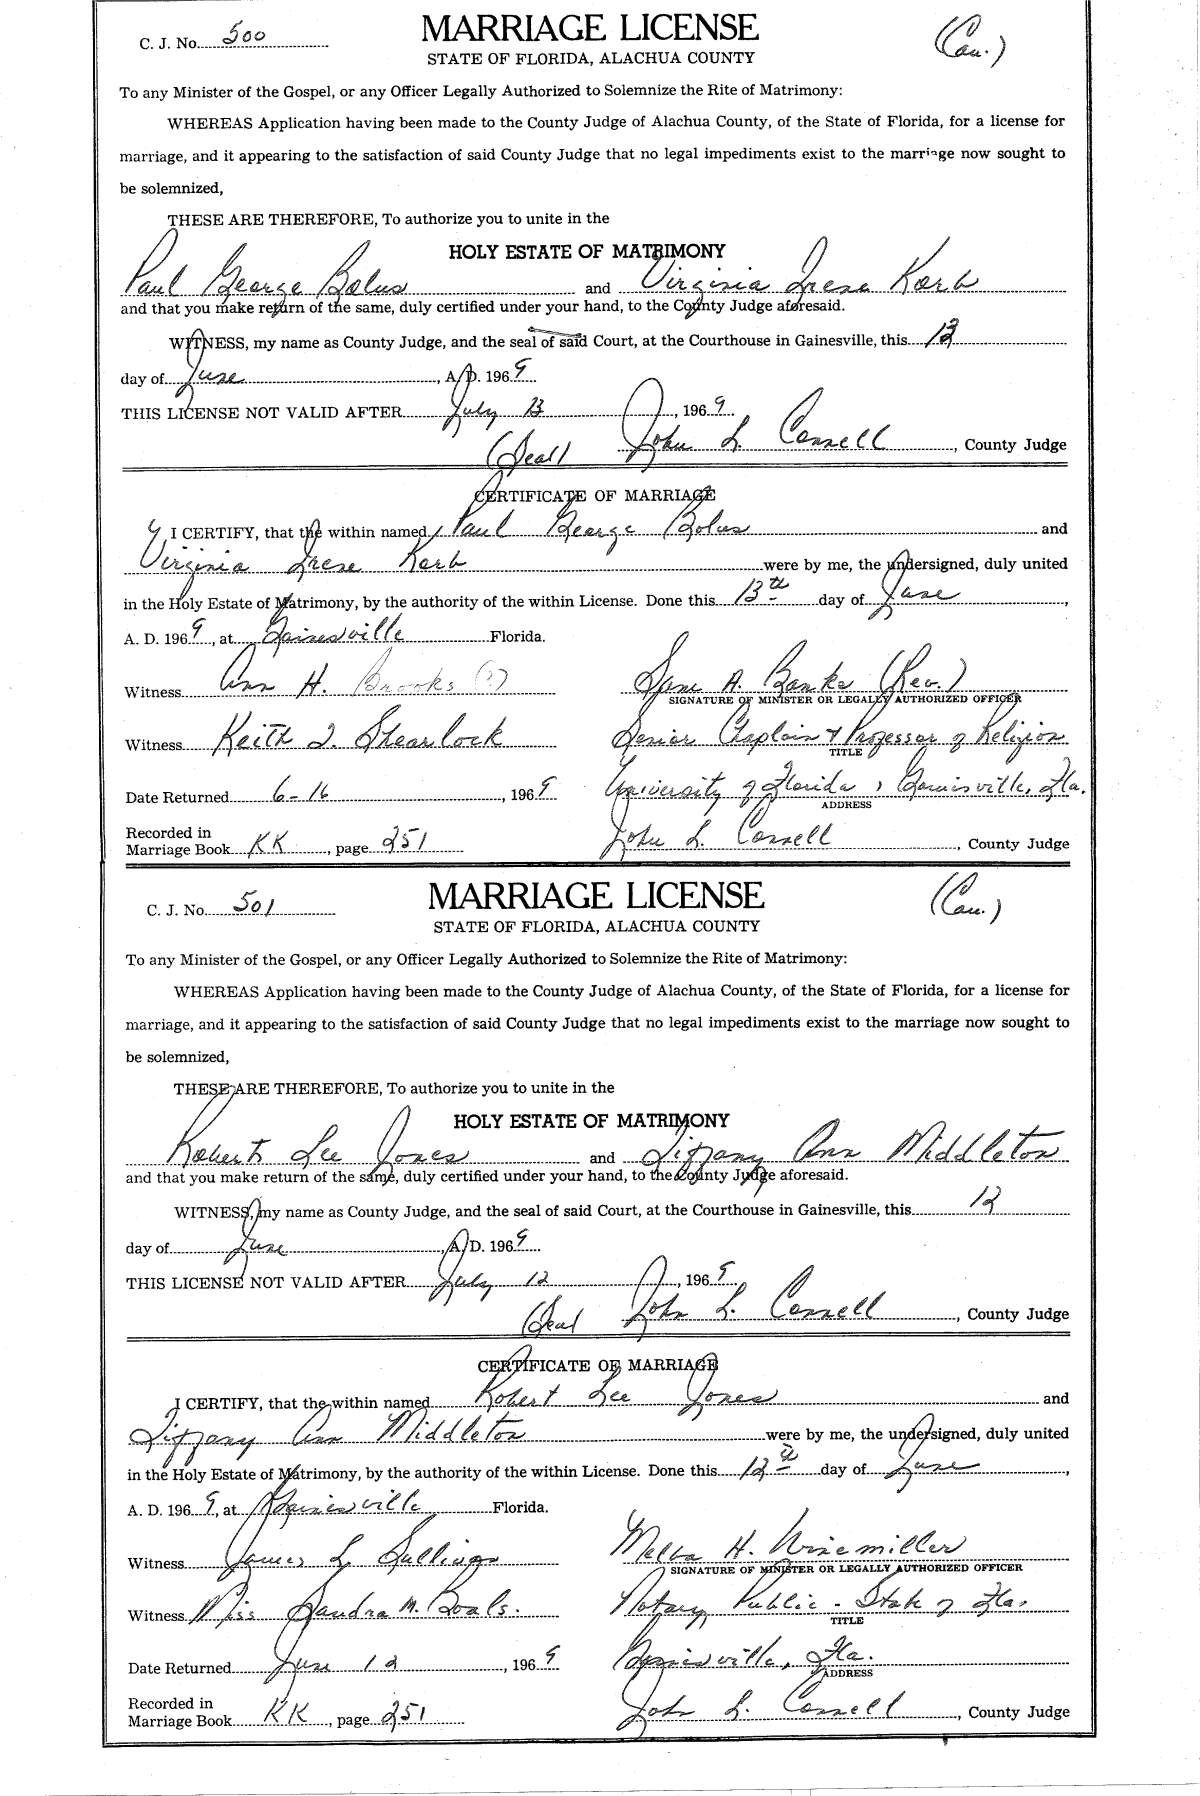 C. J. No. 500 MARRIAGE LICENSE (Cau.)
STATE OF FLORIDA, ALACHUA COUNTY
To any Minister of the Gospel, or any Officer Legally Authorized to Solemnize the Rite of Matrimony:
WHEREAS Application having been made to the County Judge of Alachua County, of the State of Florida, for a license for
marriage, and it appearing to the satisfaction of said County Judge that no legal impediments exist to the marriage now sought to
be solemnized,
THESE ARE THEREFORE, To authorize you to unite in the
HOLY ESTATE OF MATRIMONY
Paul George Bolus and Virginia Irene Korb
and that you make return of the same, duly certified under your hand, to the County Judge aforesaid.
WITNESS, my name as County Judge, and the seal of said Court, at the Courthouse in Gainesville, this 13
day of June, A. D. 1969
THIS LICENSE NOT VALID AFTER July 13, 1969
(Seal) John L. Connell, County Judge
CERTIFICATE OF MARRIAGE
I CERTIFY, that the within named Paul George Bolus and
Virginia Irene Korb were by me, the undersigned, duly united
in the Holy Estate of Matrimony, by the authority of the within License. Done this 13th day of June,
A. D. 1969, at Gainesville Florida.
Witness Ann H. Brooks (?) A. Banks (Rev.)
SIGNATURE OF MINISTER OR LEGALLY AUTHORIZED OFFICER
Witness Keith J. Shearlock Senior Chaplain & Professor of Religion
TITLE
Date Returned 6-16, 1969 University of Florida, Gainesville, Fla.
ADDRESS
Recorded in
Marriage Book KK, page 251 John L. Connell, County Judge
C. J. No. 501 MARRIAGE LICENSE (Cau.)
STATE OF FLORIDA, ALACHUA COUNTY
To any Minister of the Gospel, or any Officer Legally Authorized to Solemnize the Rite of Matrimony:
WHEREAS Application having been made to the County Judge of Alachua County, of the State of Florida, for a license for
marriage, and it appearing to the satisfaction of said County Judge that no legal impediments exist to the marriage now sought to
be solemnized,
THESE ARE THEREFORE, To authorize you to unite in the
HOLY ESTATE OF MATRIMONY
Robert Lee Jones and Tiffany Ann Middleton
and that you make return of the same, duly certified under your hand, to the County Judge aforesaid.
WITNESS, my name as County Judge, and the seal of said Court, at the Courthouse in Gainesville, this 12
day of June, A. D. 1969
THIS LICENSE NOT VALID AFTER July 12, 1969
(Seal John L. Connell, County Judge
CERTIFICATE OF MARRIAGE
I CERTIFY, that the within named Robert Lee Jones and
Tiffany Ann Middleton were by me, the undersigned, duly united
in the Holy Estate of Matrimony, by the authority of the within License. Done this 12th day of June,
A. D. 1969, at Gainesville Florida.
Witness James L. Sullivan Melba H. Winemiller
SIGNATURE OF MINISTER OR LEGALLY AUTHORIZED OFFICER
Witness Miss Sandra M. Boals. Notary Public - State of Fla.
TITLE
Date Returned June 12, 1969 Gainesville, Fla.
ADDRESS
Recorded in
Marriage Book KK, page 251 John L. Connell, County Judge